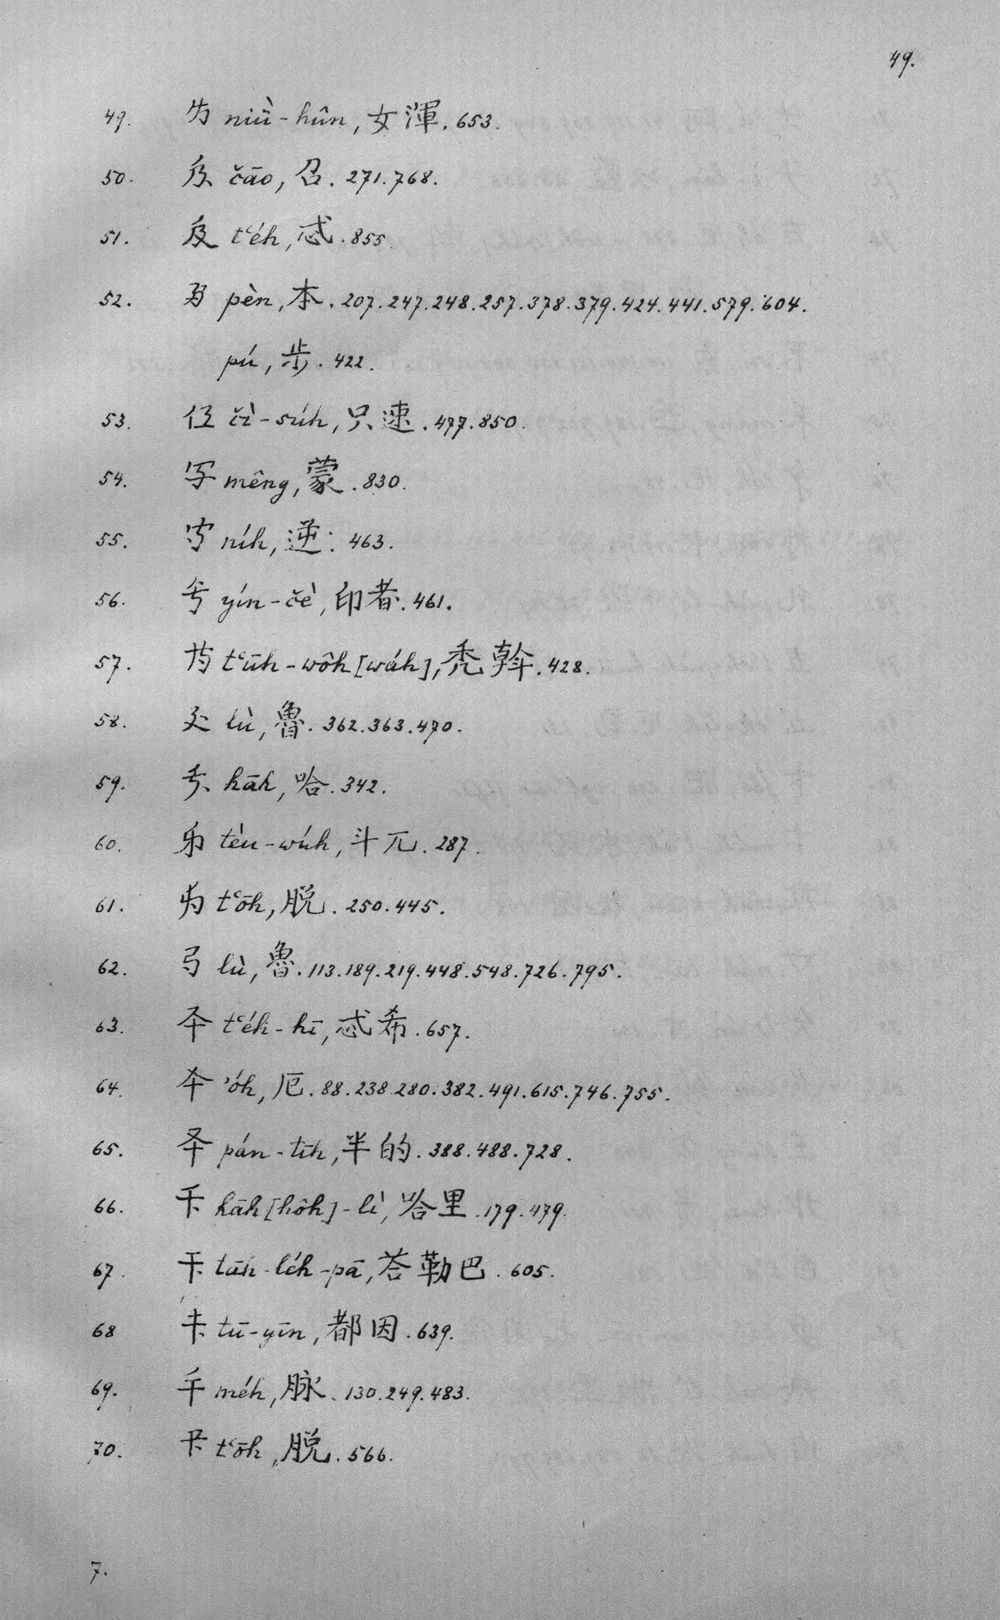 49.
49. niù-hûn, 女渾. 653.
50. čāo, 召. 271. 768.
51. t'éh, 忒. 855.
52. pèn, 本. 207. 247. 248. 257. 378. 379. 424. 441. 579. 604.
pú, 步. 422.
53. čì-súh, 只速. 477. 850.
54. mêng, 蒙. 830.
55. níh, 逆. 463.
56. yín-čè, 印者. 461.
57. t'ūh-wôh [wáh], 禿斡. 428.
58. lù, 魯. 362. 363. 470.
59. hāh, 哈. 342.
60. tèu-wúh, 斗兀. 287.
61. t'ōh, 脱. 250. 445.
62. lù, 魯. 113. 189. 219. 448. 548. 726. 795.
63. t'éh-hī, 忒希. 657.
64. 'óh, 厄. 88. 238. 280. 382. 491. 615. 746. 755.
65. pán-tīh, 半的. 388. 488. 728.
66. hāh [hôh]-lì, 哈里. 179. 479.
67. tāh-léh-pā, 荅勒巴. 605.
68 tū-yīn, 都因. 639.
69. méh, 脉. 130. 249. 483.
70. t'ōh, 脱. 566.
7.